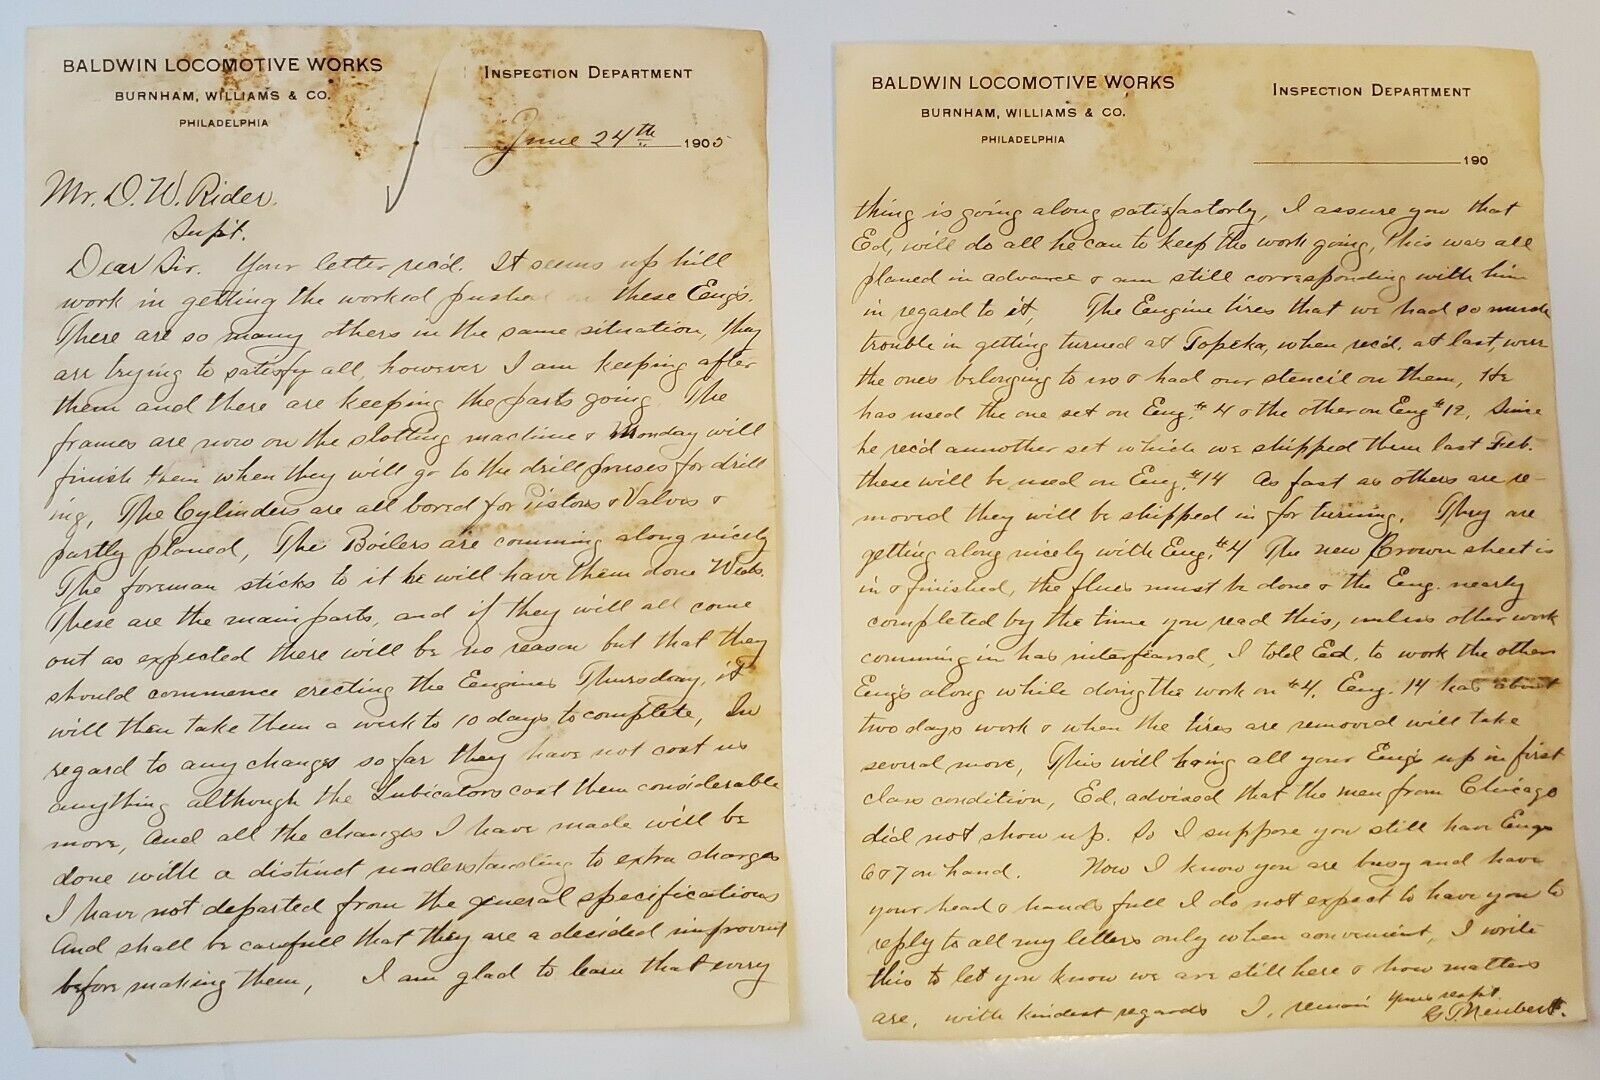 BALDWIN LOCOMOTIVE WORKS
BURNHAM, WILLIAMS & CO.
PHILADELPHIA
INSPECTION DEPARTMENT
June 24th 1905
Mr. D. W. Rider.
Supt.
Dear Sir. Your letter rec'd. It seems up hill
work in getting the worked pushed on these Eng's.
There are so many others in the same situation, they
are trying to satisfy all, however I am keeping after
them and there are keeping the parts going. The
frames are now on the slotting machine & Monday will
finish them when they will go to the drill presses for drill
ing, The Cylinders are all bored for Pistons & Valves &
partly planed, The Boilers are comming along nicely
The foreman sticks to it he will have them done Weds.
These are the main parts, and if they will all come
out as expected there will be no reason but that they
should commence erecting the Engines Thursday, it
will then take them a week to 10 days to complete, In
regard to any changs so far they have not cost us
anything although the Lubicators cost them considerable
more, And all the changes I have made will be
done with a distinct understanding to extra charges
I have not departed from the general specifications
And shall be carefull that they are a decided improvmt
before making them, I am glad to learn that every
BALDWIN LOCOMOTIVE WORKS
BURNHAM, WILLIAMS & CO.
PHILADELPHIA
INSPECTION DEPARTMENT
190
thing is going along satisfactorly, I assure you that
Ed, will do all he can to keep the work going, this was all
planed in advance & am still corresponding with him
in regard to it The Engine tires that we had so much
trouble in getting turned at Topeka, when rec'd. at last, were
the ones belonging to us & had our stencil on them, He
has used the one set on Eng. #4 & the other on Eng #12, Since
he rec'd annother set which we shipped them last Feb.
these will be used on Eng. #14 As fast as others are re-
moved they will be shipped in for turning, They are
getting along nicely with Eng. #4 The new Crown sheet is
in & finished, the flues must be done & the Eng. nearly
completed by the time you read this, unless other work
comming in has interfeared, I told Ed. to work the others
Eng's along while doing the work on #4. Eng. 14 has about
two days work & when the tires are removed will take
several more, This will bring all your Eng's up in first
class condition, Ed. advised that the men from Chicago
did not show up. So I suppose you still have Engs
6 & 7 on hand. Now I know you are busy and have
your head & hands full I do not expect to have you to
reply to all my letters only when convenient, I write
this to let you know we are still here & how matters
are, with kindest regards I, remain Yours respt.
G. T. Neubert.